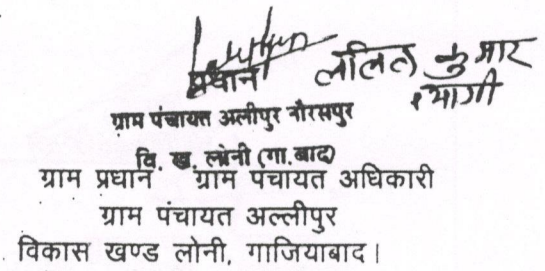 प्रधान ललित कुमार
त्यागी
ग्राम पंचायत अलीपुर नौरसपुर
वि. ख. लोनी (गा.बाद)
ग्राम प्रधान ग्राम पंचायत अधिकारी
ग्राम पंचायत अल्लीपुर
विकास खण्ड लोनी, गाजियाबाद।